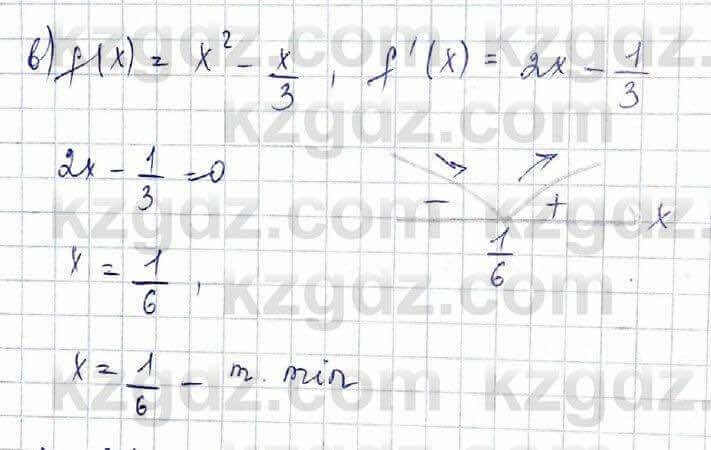 в) f(x) = x² - x/3, f'(x) = 2x - 1/3
2x - 1/3 = 0
- + x
1/6
x = 1/6,
x = 1/6 - т. min
kzgdz.com kzgdz.com
kzgdz.com
kzgdz.com kzgdz.com
kzgdz.com
kzgdz.com kzgdz.com